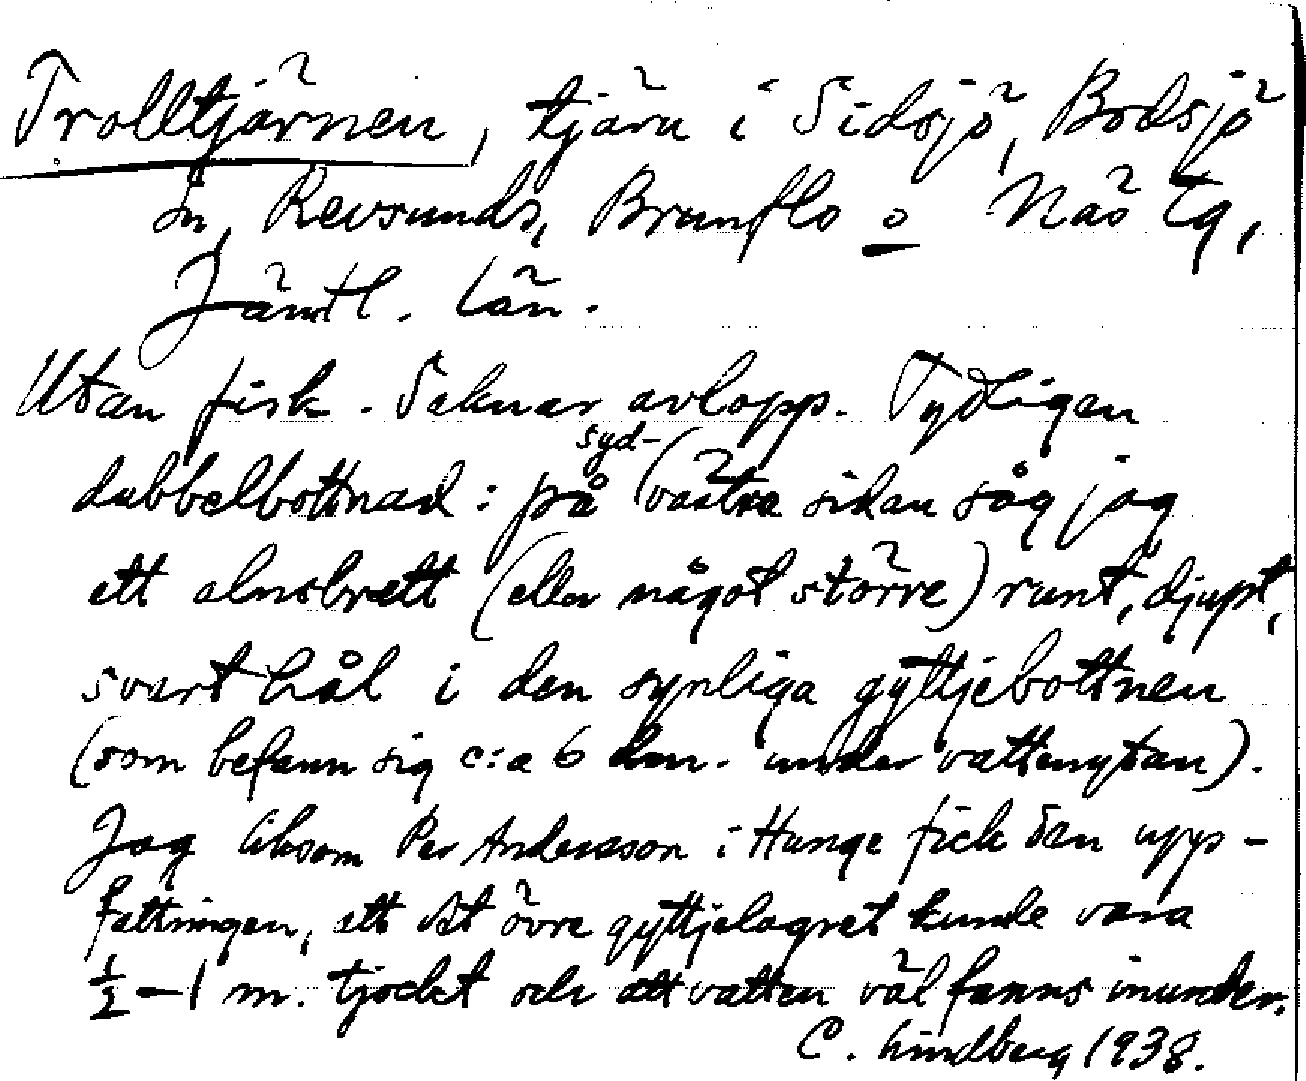 Trolltjärnen, tjärn i Sidsjö, Bodsjö
sn, Revsunds, Brunflo o Näs tg,
Jämtl. län.
Utan fisk. Saknar avlopp. Tydligen
syd-
dubbelbottnad: på (västra sidan såg jag
ett alnsbrett (eller något större) runt, djupt,
svart hål i den synliga gyttjebottnen
(som befann sig c:a 6 dm. under vattenytan).
Jag liksom Per Andersson i Hunge fick den upp-
fattningen, att det övre gyttjelagret kunde vara
½–1 m. tjockt och att vatten väl fanns inunder.
C. Lindberg 1938.